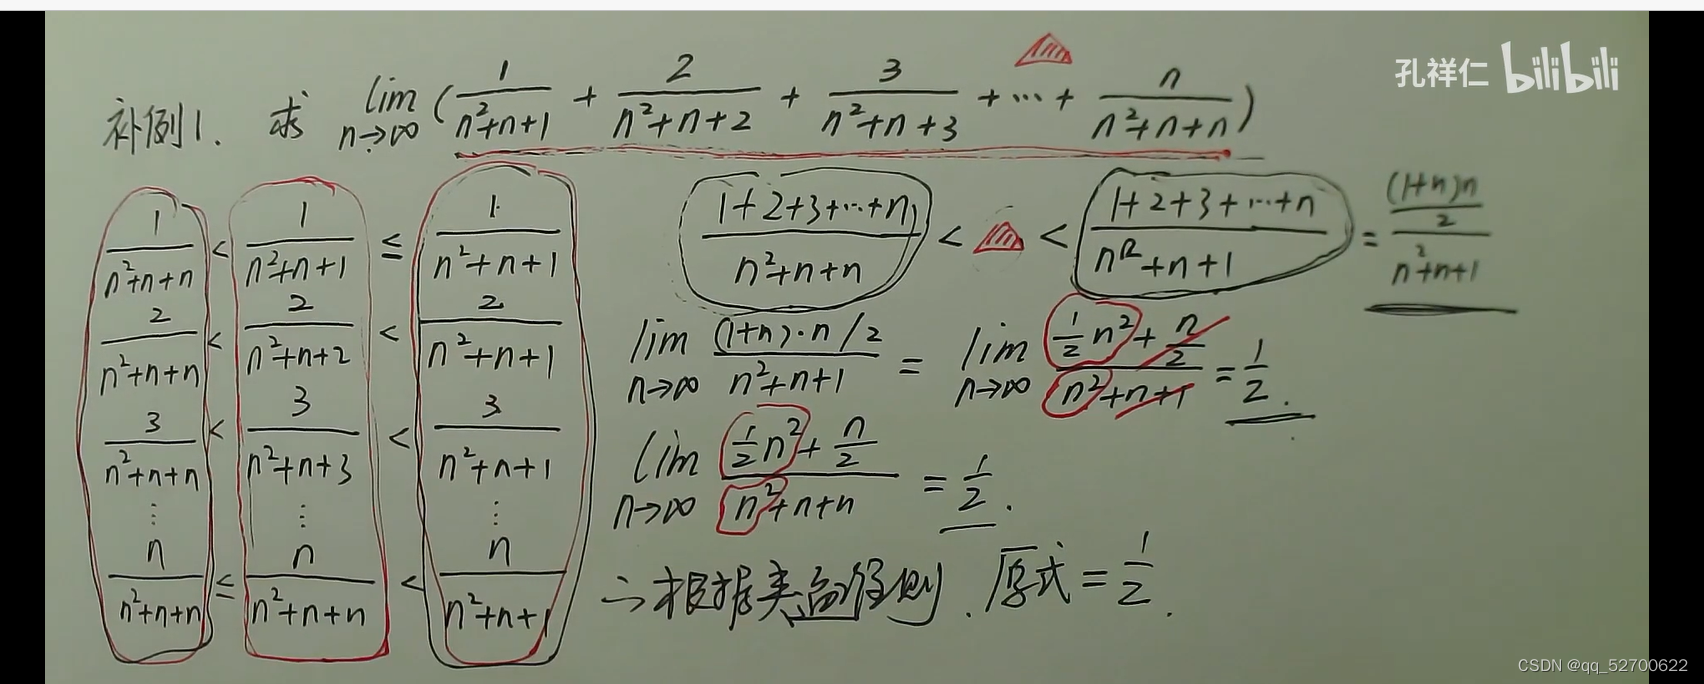 孔祥仁 bilibili
补例1. 求 lim n→∞ (1/(n²+n+1) + 2/(n²+n+2) + 3/(n²+n+3) + ··· + n/(n²+n+n))
1/(n²+n+n) < 1/(n²+n+1) ≤ 1/(n²+n+1)
2/(n²+n+n) < 2/(n²+n+2) < 2/(n²+n+1)
3/(n²+n+n) < 3/(n²+n+3) < 3/(n²+n+1)
⋮ ⋮ ⋮
n/(n²+n+n) ≤ n/(n²+n+n) < n/(n²+n+1)
(1+2+3+···+n)/(n²+n+n) < △ < (1+2+3+···+n)/(n²+n+1) = ((1+n)n/2)/(n²+n+1)
lim n→∞ ((1+n)·n/2)/(n²+n+1) = lim n→∞ (½n²+n/2)/(n²+n+1) = 1/2.
lim n→∞ (½n²+n/2)/(n²+n+n) = 1/2.
∴根据夹逼准则. 原式 = 1/2.
CSDN @qq_52700622